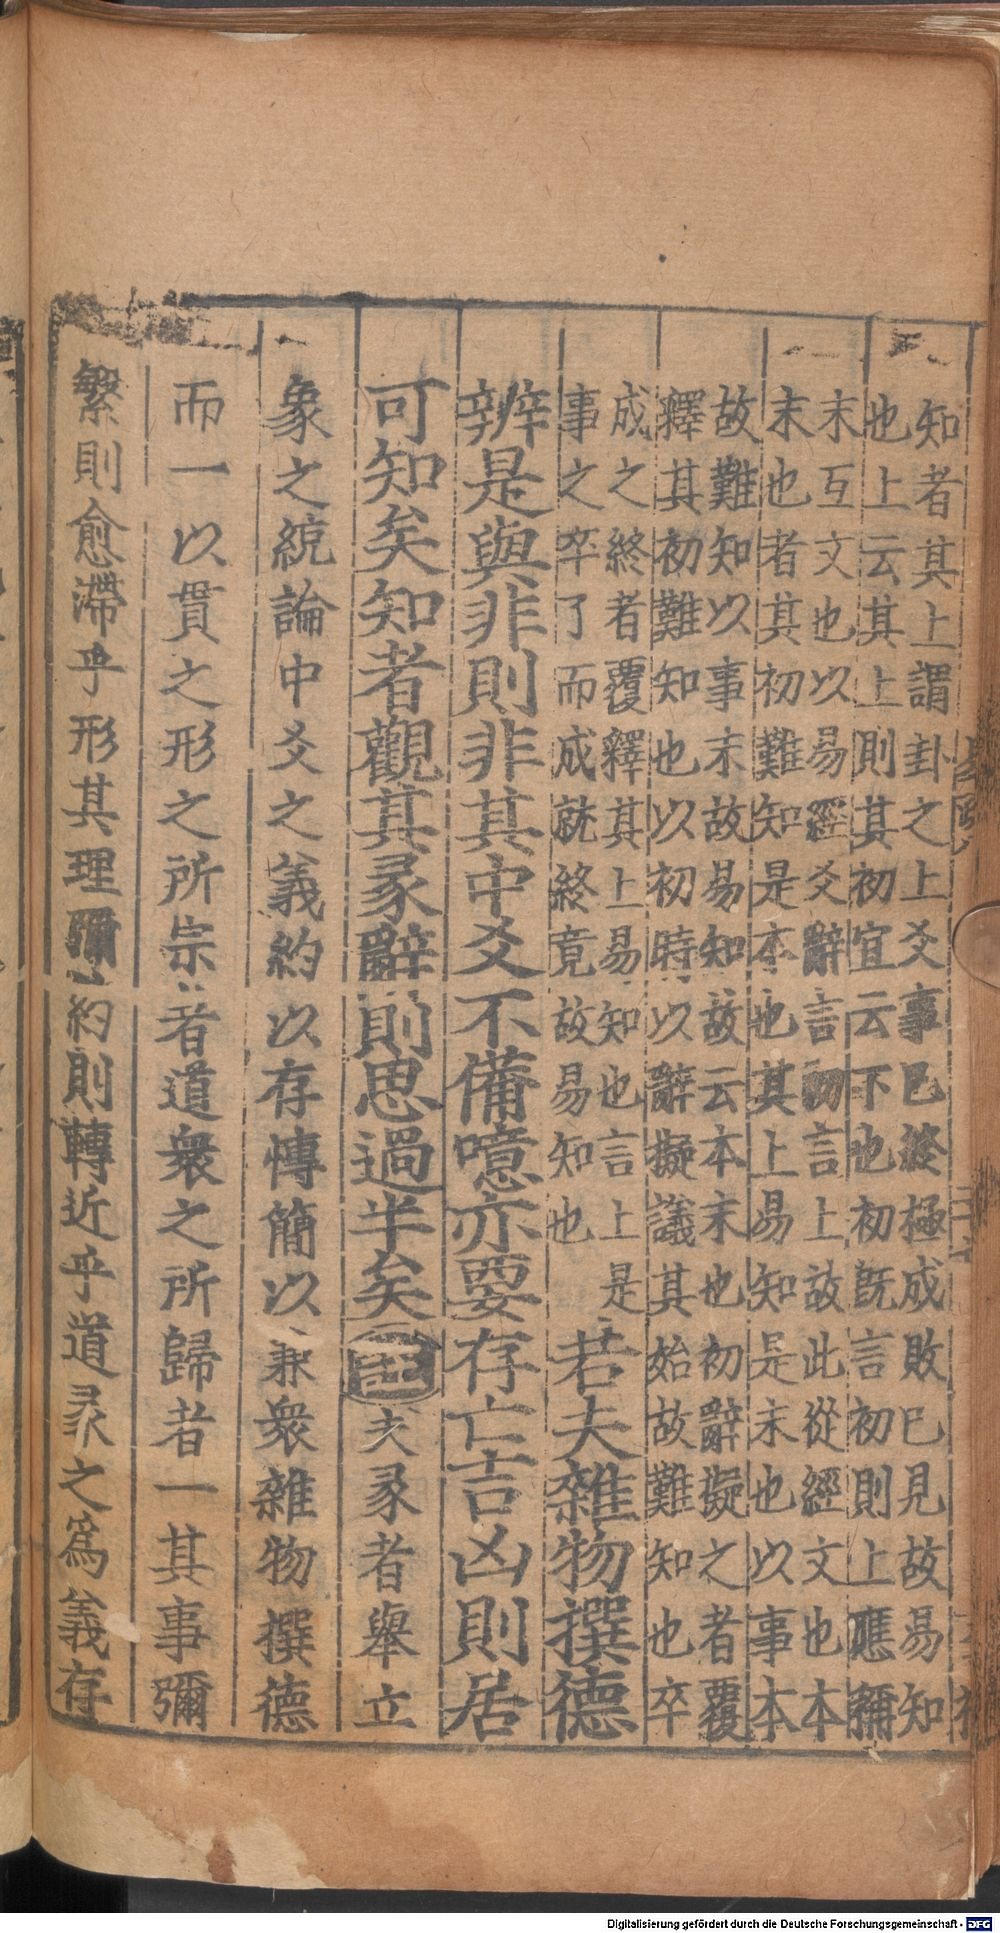 知者其上謂卦之上爻事已終極成敗已見故易知
也上云其上則其初宜云下也初旣言初則上應稱
末互文也以易經爻辭言初言上故此從經文也本
末也者其初難知是本也其上易知是末也以事本
故難知以事末故易知故云本末也初辭擬之者覆
釋其初難知也以初時以辭擬議其始故難知也卒
成之終者覆釋其上易知也言上是
事之卒了而成就終竟故易知也
若夫雜物撰德
辨是與非則非其中爻不備噫亦要存亡吉凶則居
可知矣知者觀其彖辭則思過半矣
註
夫彖者舉立
象之統論中爻之義約以存慱簡以兼衆雜物撰德
而一以貫之形之所宗者道衆之所歸者一其事彌
繁則愈滯乎形其理彌約則轉近乎道彖之爲義存
Digitalisierung gefördert durch die Deutsche Forschungsgemeinschaft - DFG